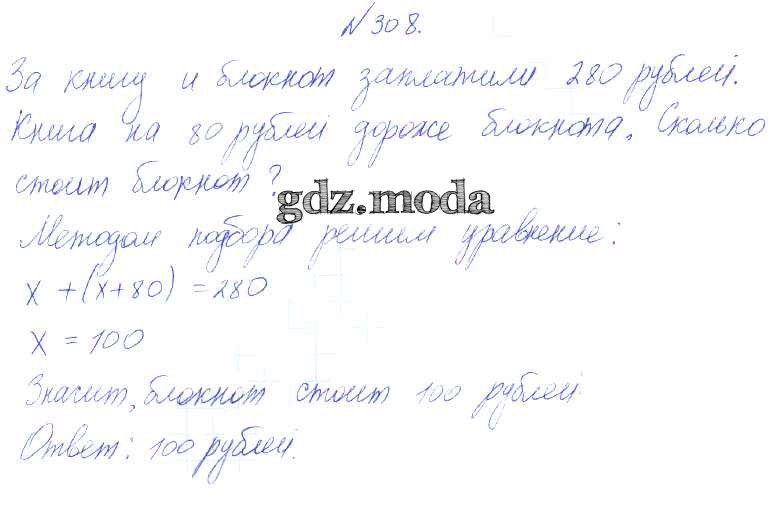 №308.
За книгу и блокнот заплатили 280 рублей.
Книга на 80 рублей дороже блокнота. Сколько
стоит блокнот?
gdz.moda
Методом подбора решим уравнение:
x + (x+80) = 280
x = 100
Значит, блокнот стоит 100 рублей.
Ответ: 100 рублей.